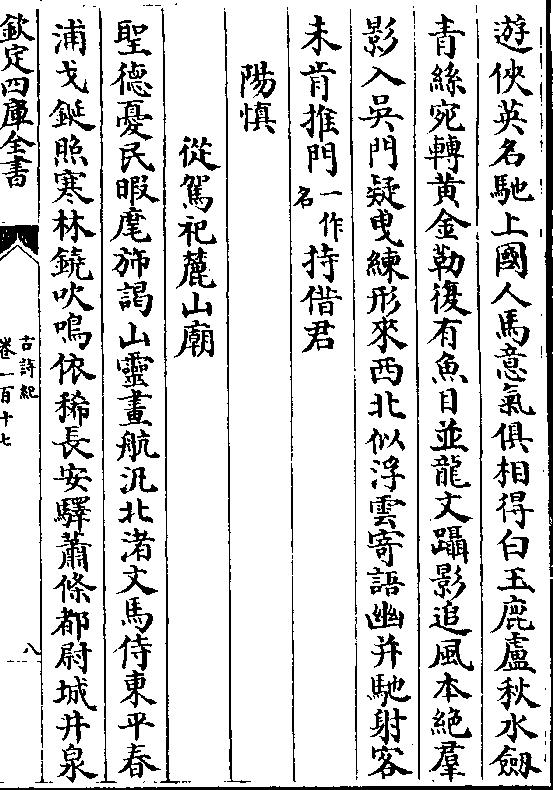 遊俠英名馳上國人馬意氣俱相得白玉鹿盧秋水劒
青絲宛轉黃金勒復有魚目並龍文躡影追風本絶羣
影入吳門疑曳練形來西北似浮雲寄語幽并馳射客
未肯推門一作名持借君
陽慎
從駕祀麓山廟
聖德憂民暇麾斾謁山靈畫航汎北渚文馬侍東平春
浦戈鋋照寒林鐃吹鳴依稀長安驛蕭條都尉城井泉
欽定四庫全書
古詩紀
卷一百十七
八